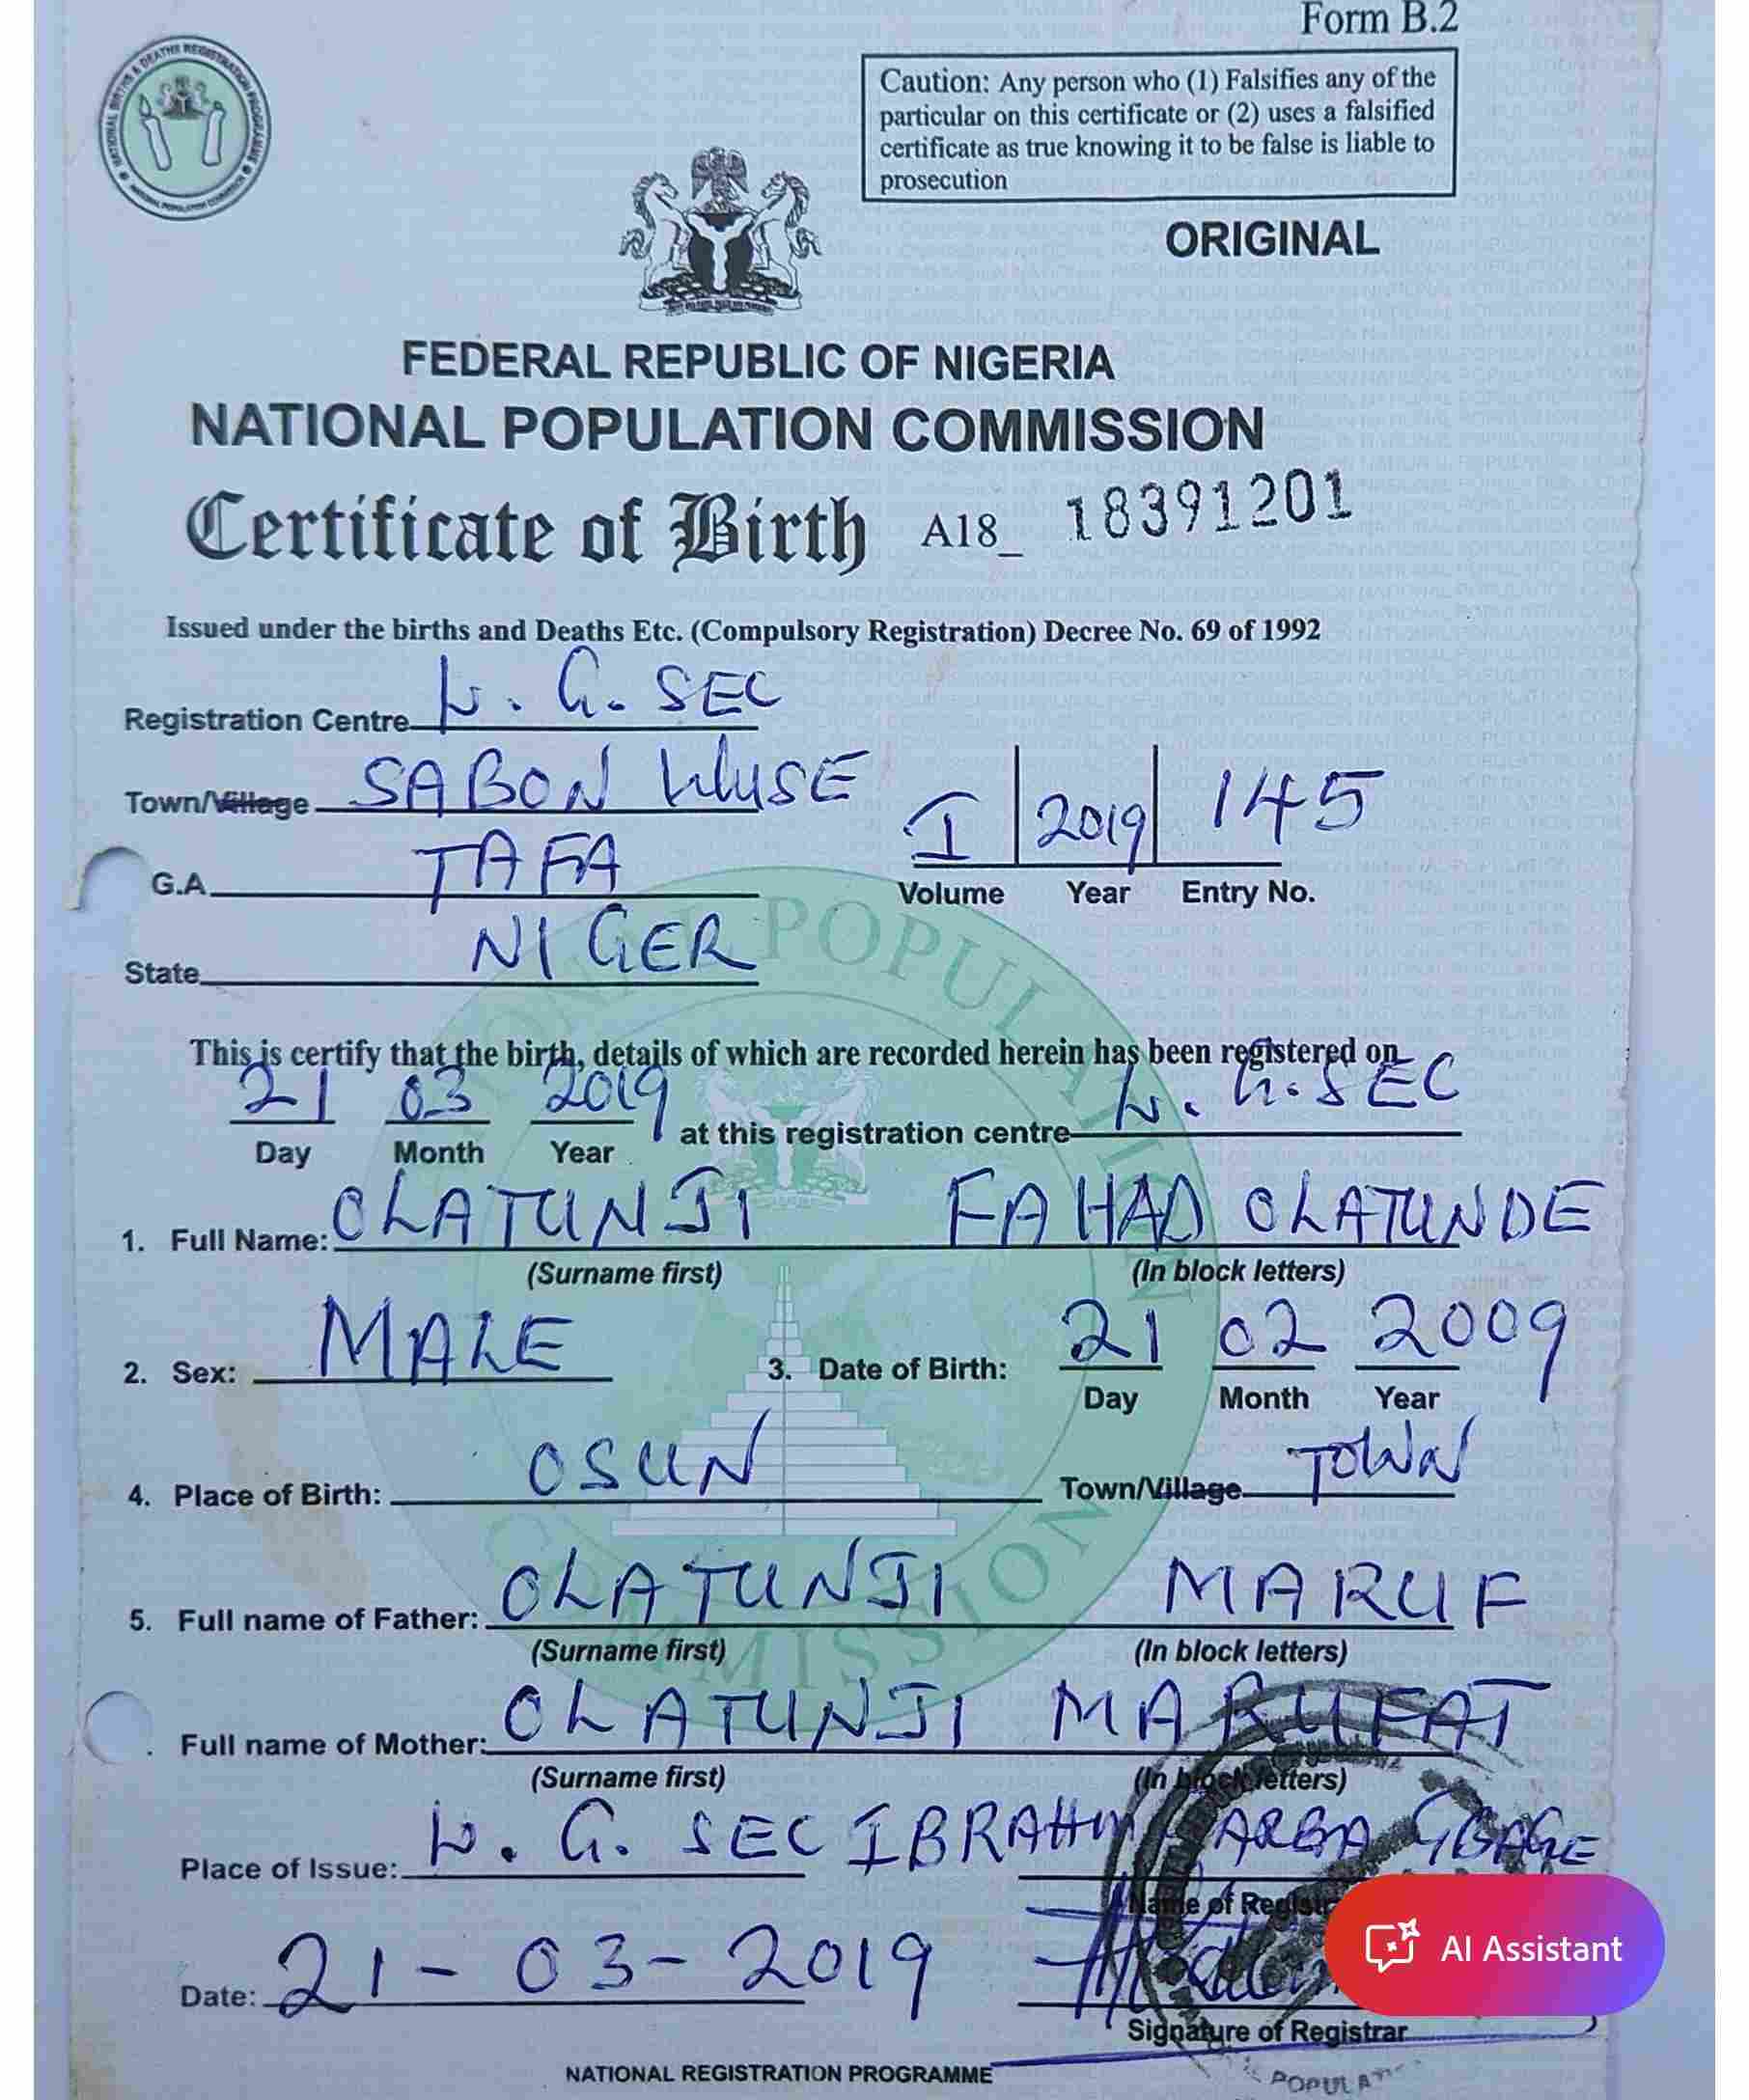 Form B.2
Caution: Any person who (1) Falsifies any of the
particular on this certificate or (2) uses a falsified
certificate as true knowing it to be false is liable to
prosecution
NATIONAL BIRTHS & DEATHS REGISTRATION PROGRAMME
NATIONAL POPULATION COMMISSION
ORIGINAL
FEDERAL REPUBLIC OF NIGERIA
NATIONAL POPULATION COMMISSION
Certificate of Birth A18_ 18391201
Issued under the births and Deaths Etc. (Compulsory Registration) Decree No. 69 of 1992
Registration Centre L. G. SEC
Town/Village SABON WUSE
I 2019 145
G.A TAFA
Volume Year Entry No.
State NIGER
This is certify that the birth, details of which are recorded herein has been registered on
21 03 2019 at this registration centre L. G. SEC
Day Month Year
1. Full Name: OLATUNJI FAHAD OLATUNDE
(Surname first) (In block letters)
2. Sex: MALE 3. Date of Birth: 21 02 2009
Day Month Year
4. Place of Birth: OSUN Town/Village TOWN
5. Full name of Father: OLATUNJI MARUF
(Surname first) (In block letters)
Full name of Mother: OLATUNJI MARUFAT
(Surname first) (In block letters)
Place of Issue: L. G. SEC IBRAHIM GBAGE
Name of Registr
AI Assistant
Date: 21-03-2019
Signature of Registrar
NATIONAL REGISTRATION PROGRAMME
POPULAT